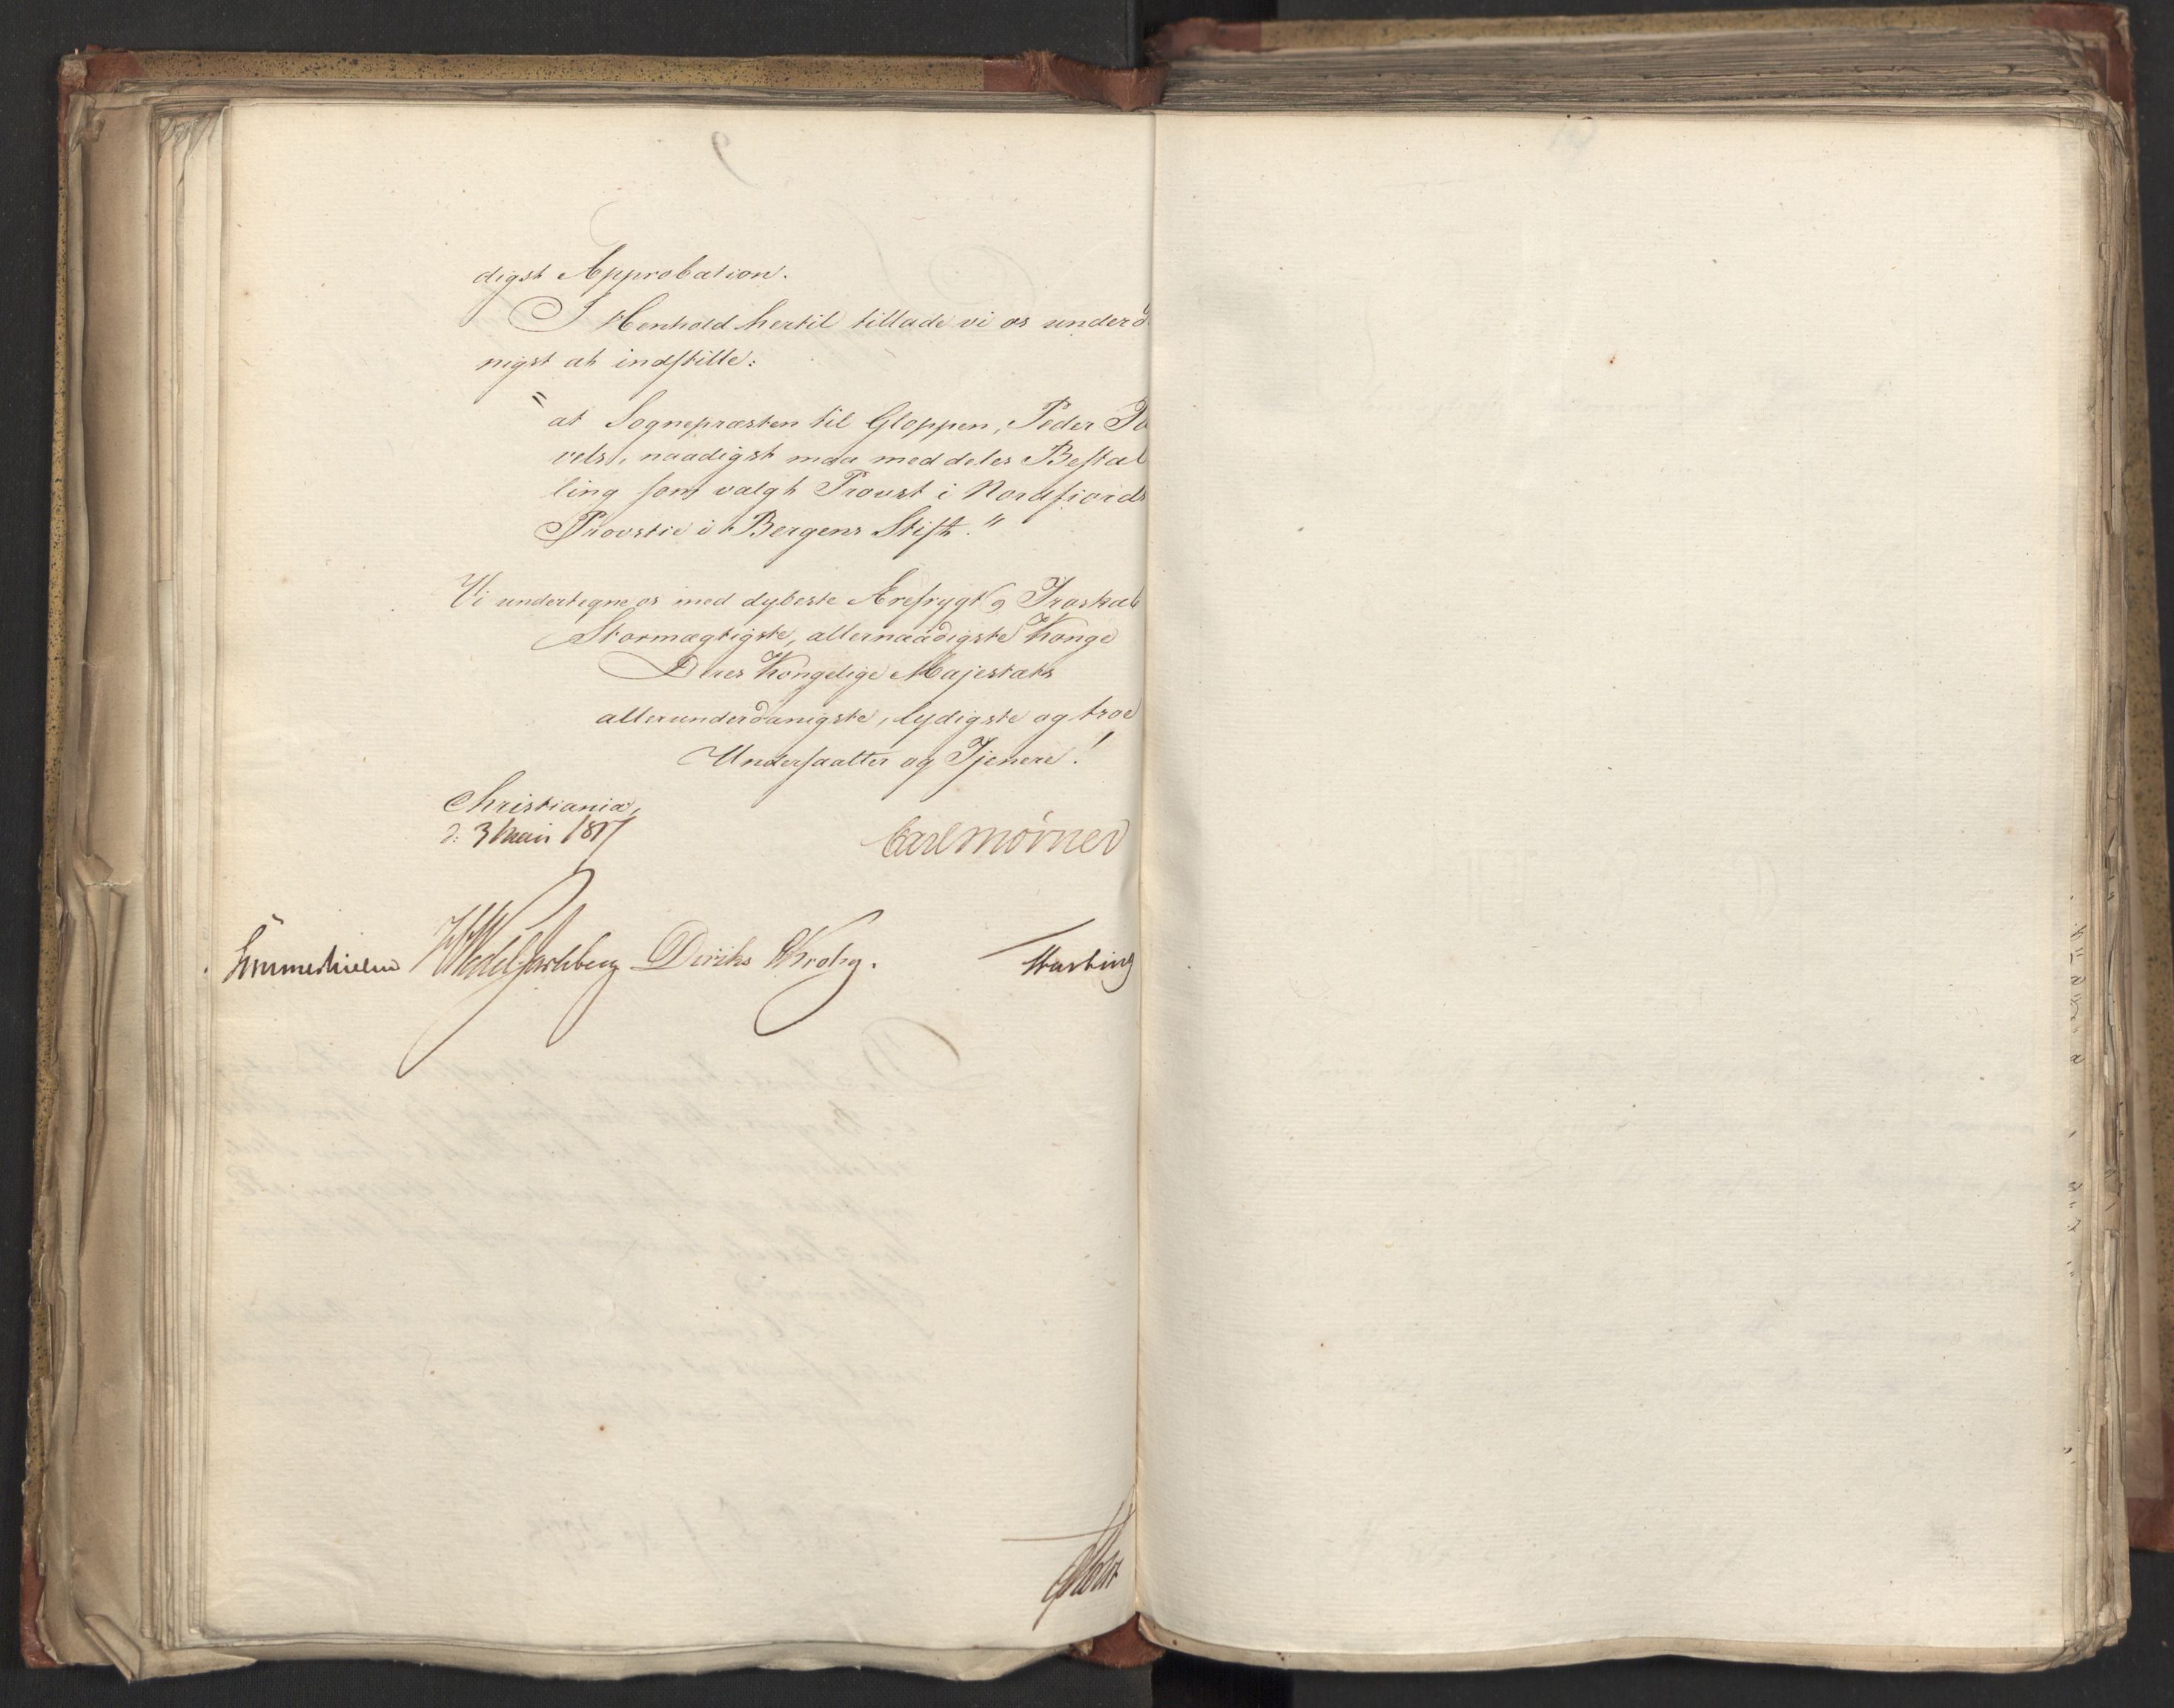 digst Approbation.
I Henhold hertil tillade vi os underd
nigst at indstille:
"at Sognepræsten til Gloppen, Peder Pa
vels, naadigst maa meddeles Bestal
ling som valgt Provst i Nordfjords
Provstie i Bergens Stift."
Vi undertegne os med dybeste Ærefrygt og Troskab
Stormægtigste, allernaadigste Konge
Deres Kongelige Majestæts
allerunderdanigste, lydigste og troe
Undersaatter og Tjenere!
Christiania,
d: 3 Mai 1817
Carl Mörner
Sommerhielm Wedel Jarlsberg Diriks Krohg.
Hasting
Holst